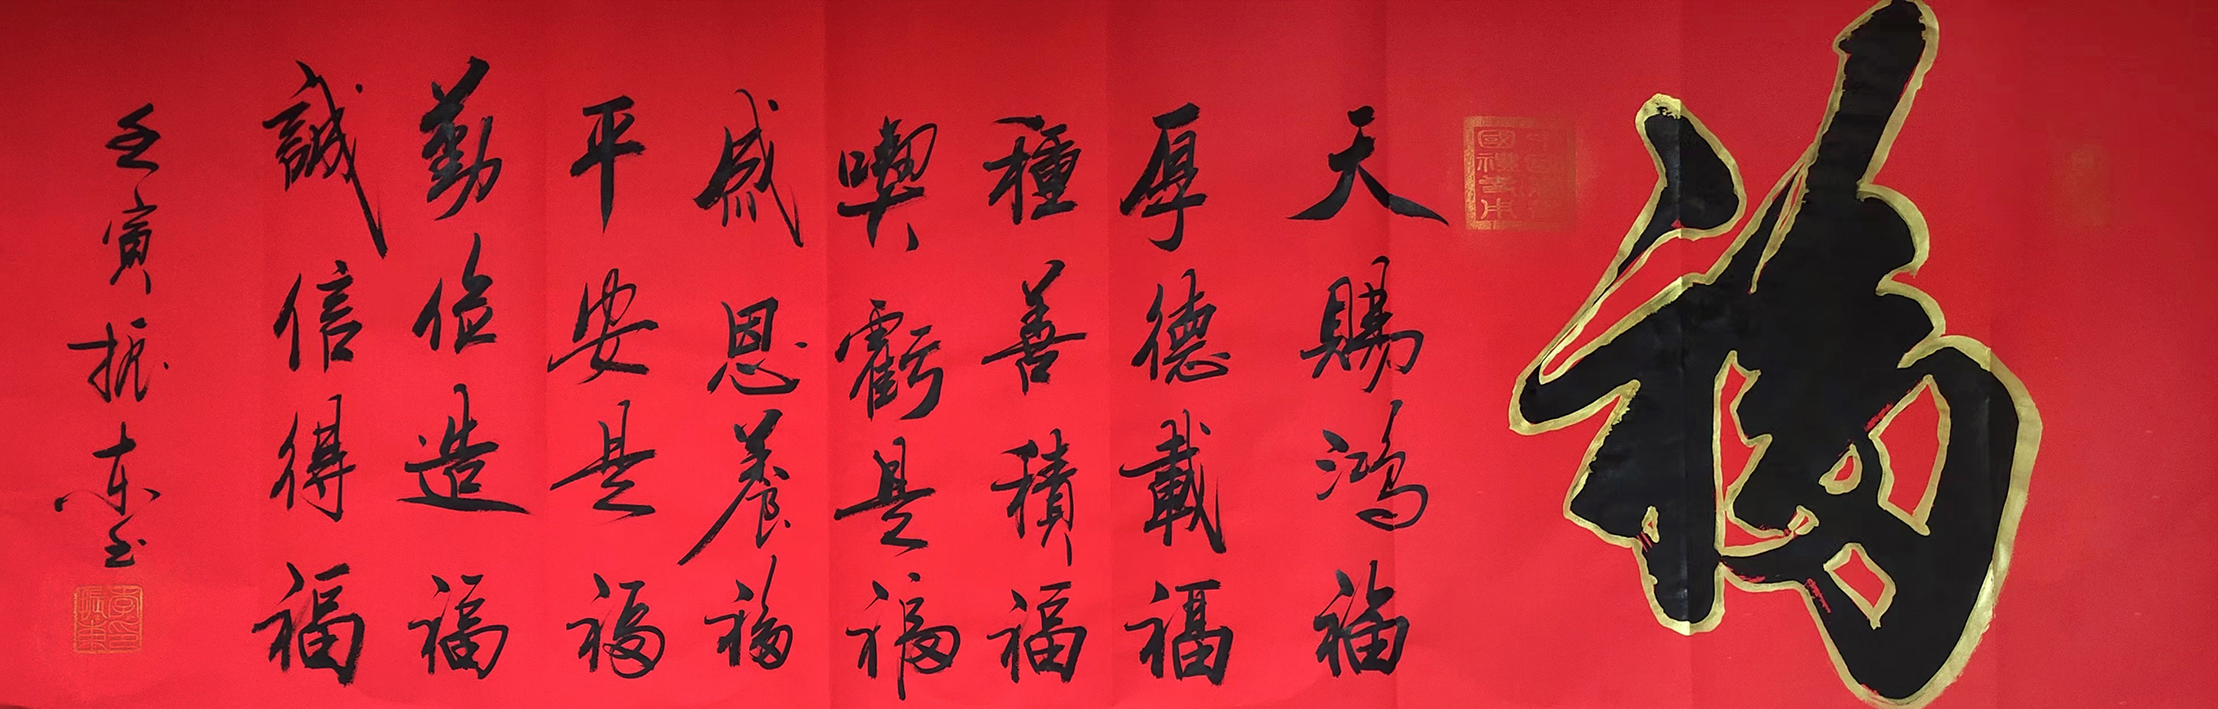 福
天賜鴻福
厚德載福
種善積福
喫虧是福
感恩養福
平安是福
勤儉造福
誠信得福
壬寅振東书